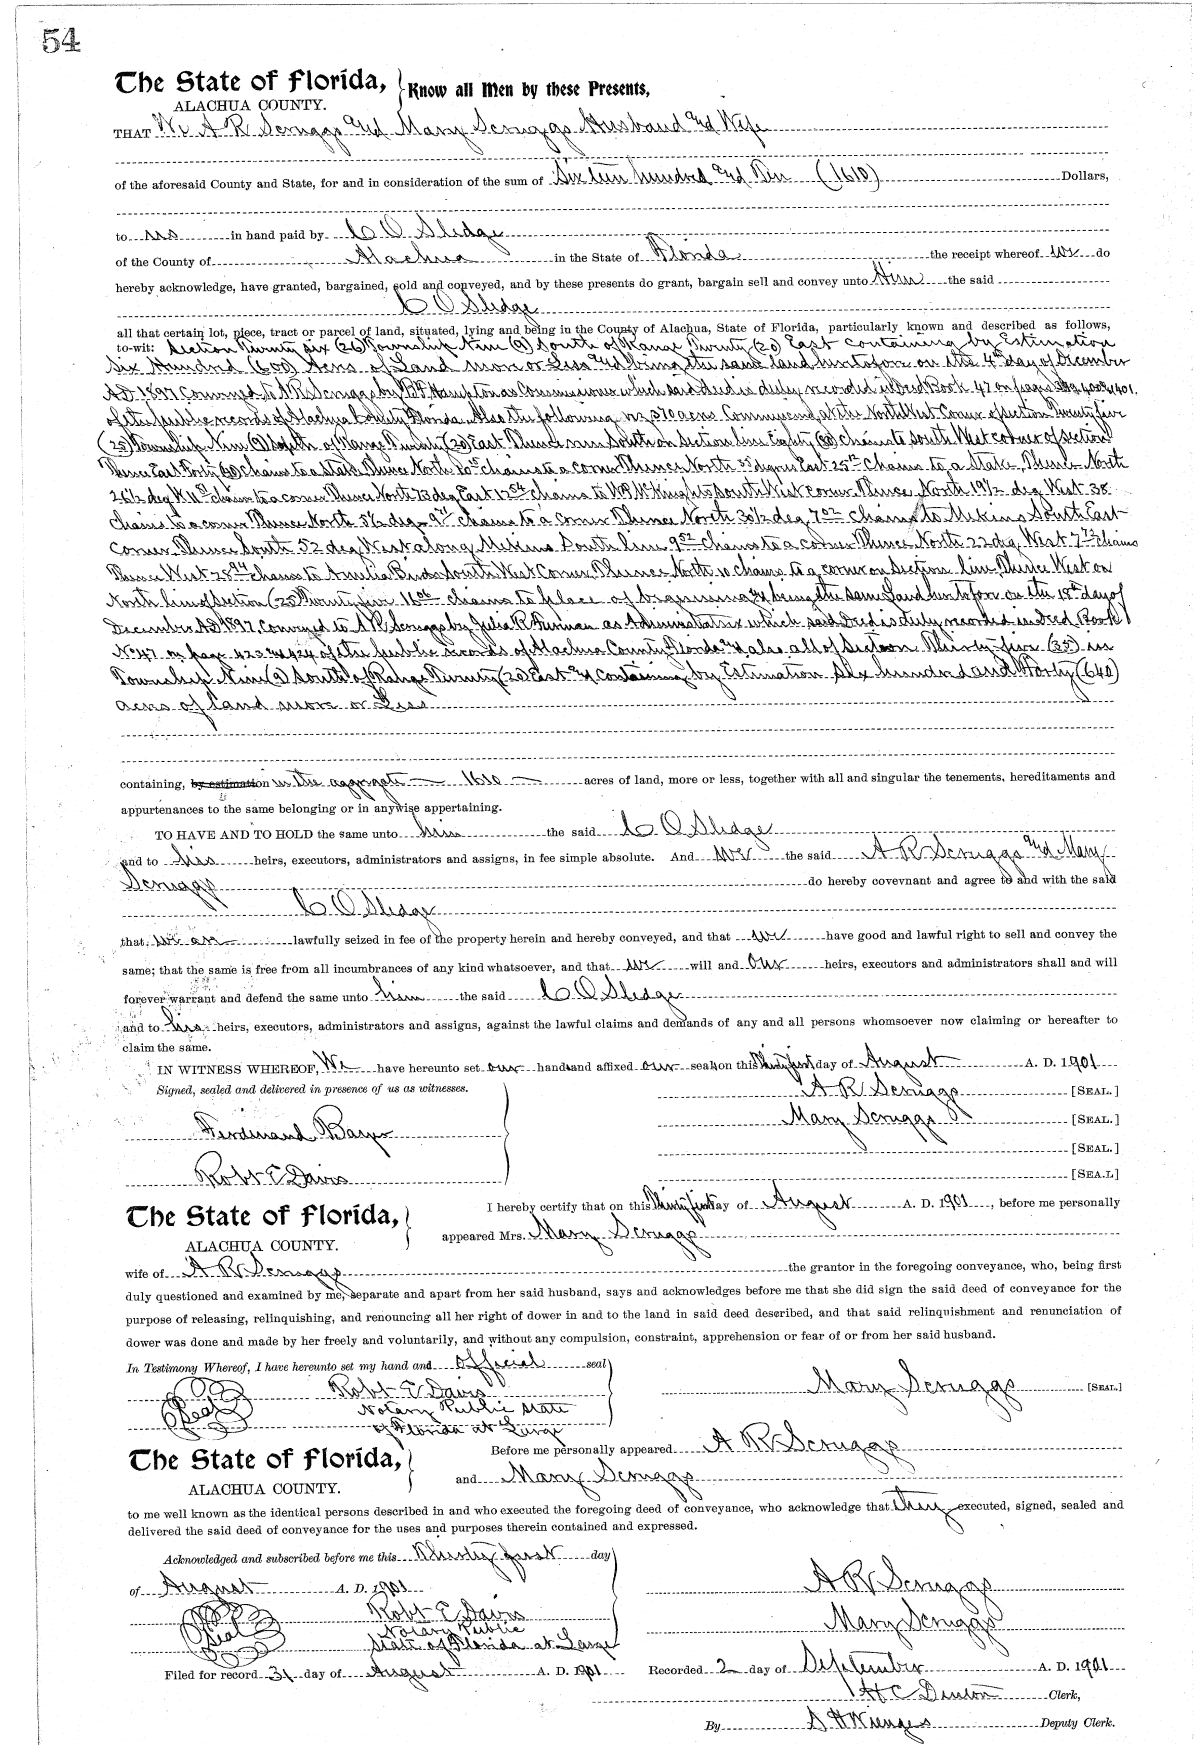 54
The State of Florida, Know all Men by these Presents,
ALACHUA COUNTY.
THAT We A R Scruggs and Mary Scruggs Husband and Wife
of the aforesaid County and State, for and in consideration of the sum of Sixteen hundred and Ten (1610) Dollars,
to us in hand paid by C O Sledge
of the County of Alachua in the State of Florida the receipt whereof we do
hereby acknowledge, have granted, bargained, sold and conveyed, and by these presents do grant, bargain sell and convey unto Him the said
C O Sledge
all that certain lot, piece, tract or parcel of land, situated, lying and being in the County of Alachua, State of Florida, particularly known and described as follows,
to-wit: Section Twenty six (26) Township Nine (9) South of Range Twenty (20) East containing by Estimation
Six Hundred (600) Acres of Land more or Less and being the same land heretofore on the 4th day of December
AD 1897 Conveyed to A R Scruggs by B F Hampton as Commissioner which said deed is duly recorded in Deed Book 47 on pages 400 & 401.
of the public records of Alachua County Florida. Also the following 370 acres Commence at the North West Corner of Section Twenty five
(25) Township Nine (9) South of Range Twenty (20) East Thence run South on section line Eighty (80) chains to south West corner of section
Thence East Forty (40) chains to a Stake Thence North chains to a corner Thence North degrees East chains to a Stake, Thence North
26½ deg W chains to a corner Thence North deg East chains to McKnights South West corner Thence North 19½ deg West 38
chains to a corner Thence North 5½ deg chains to a corner Thence North 30½ deg chains to Mekins South East
Corner Thence South 52 deg West along Mekins South line 9 52 chains to a corner Thence North 22 deg West chains
Thence West chains to Amelia South West Corner Thence North 10 chains to a corner on Section line, Thence West on
North line of Section (25) Twenty five chains to place of beginning and being the same Land heretofore on the day of
December AD 1897, Conveyed to A R Scruggs by Julia R as Administratrix which said Deed is duly recorded in Deed Book
No 47 on page 423 and 424 of the public records of Alachua County Florida and also all of Section Thirty-five (35) in
Township Nine (9) South of Range Twenty (20) East and Containing by Estimation Six hundred and Forty (640)
acres of land more or Less
containing, by estimation in the aggregate 1610 acres of land, more or less, together with all and singular the tenements, hereditaments and
appurtenances to the same belonging or in anywise appertaining.
TO HAVE AND TO HOLD the same unto him the said C O Sledge
and to his heirs, executors, administrators and assigns, in fee simple absolute. And we the said A R Scruggs and Mary
Scruggs do hereby covevnant and agree to and with the said
C O Sledge
that we are lawfully seized in fee of the property herein and hereby conveyed, and that we have good and lawful right to sell and convey the
same; that the same is free from all incumbrances of any kind whatsoever, and that we will and our heirs, executors and administrators shall and will
forever warrant and defend the same unto him the said C O Sledge
and to his heirs, executors, administrators and assigns, against the lawful claims and demands of any and all persons whomsoever now claiming or hereafter to
claim the same.
IN WITNESS WHEREOF, We have hereunto set our hands and affixed our seals on this Thirty first day of August A. D. 1901
Signed, sealed and delivered in presence of us as witnesses. A R Scruggs [SEAL.]
Mary Scruggs [SEAL.]
Ferdinand Bayer [SEAL.]
Robt E Davis [SEAL]
I hereby certify that on this Thirty first day of August A. D. 1901, before me personally
The State of Florida, appeared Mrs. Mary Scruggs
ALACHUA COUNTY.
wife of A R Scruggs the grantor in the foregoing conveyance, who, being first
duly questioned and examined by me, separate and apart from her said husband, says and acknowledges before me that she did sign the said deed of conveyance for the
purpose of releasing, relinquishing, and renouncing all her right of dower in and to the land in said deed described, and that said relinquishment and renunciation of
dower was done and made by her freely and voluntarily, and without any compulsion, constraint, apprehension or fear of or from her said husband.
In Testimony Whereof, I have hereunto set my hand and official seal
Seal Robt E Davis Mary Scruggs [SEAL.]
Notary Public State
of Florida at Large
The State of Florida, Before me personally appeared A R Scruggs
ALACHUA COUNTY. and Mary Scruggs
to me well known as the identical persons described in and who executed the foregoing deed of conveyance, who acknowledge that they executed, signed, sealed and
delivered the said deed of conveyance for the uses and purposes therein contained and expressed.
Acknowledged and subscribed before me this Thirty first day
of August A. D. 1901 A R Scruggs
Seal Robt E Davis
Notary Public Mary Scruggs
State of Florida at Large
Filed for record 31 day of August A. D. 1901 Recorded 2 day of September A. D. 1901
H C Denton Clerk,
By S H Wienges Deputy Clerk.